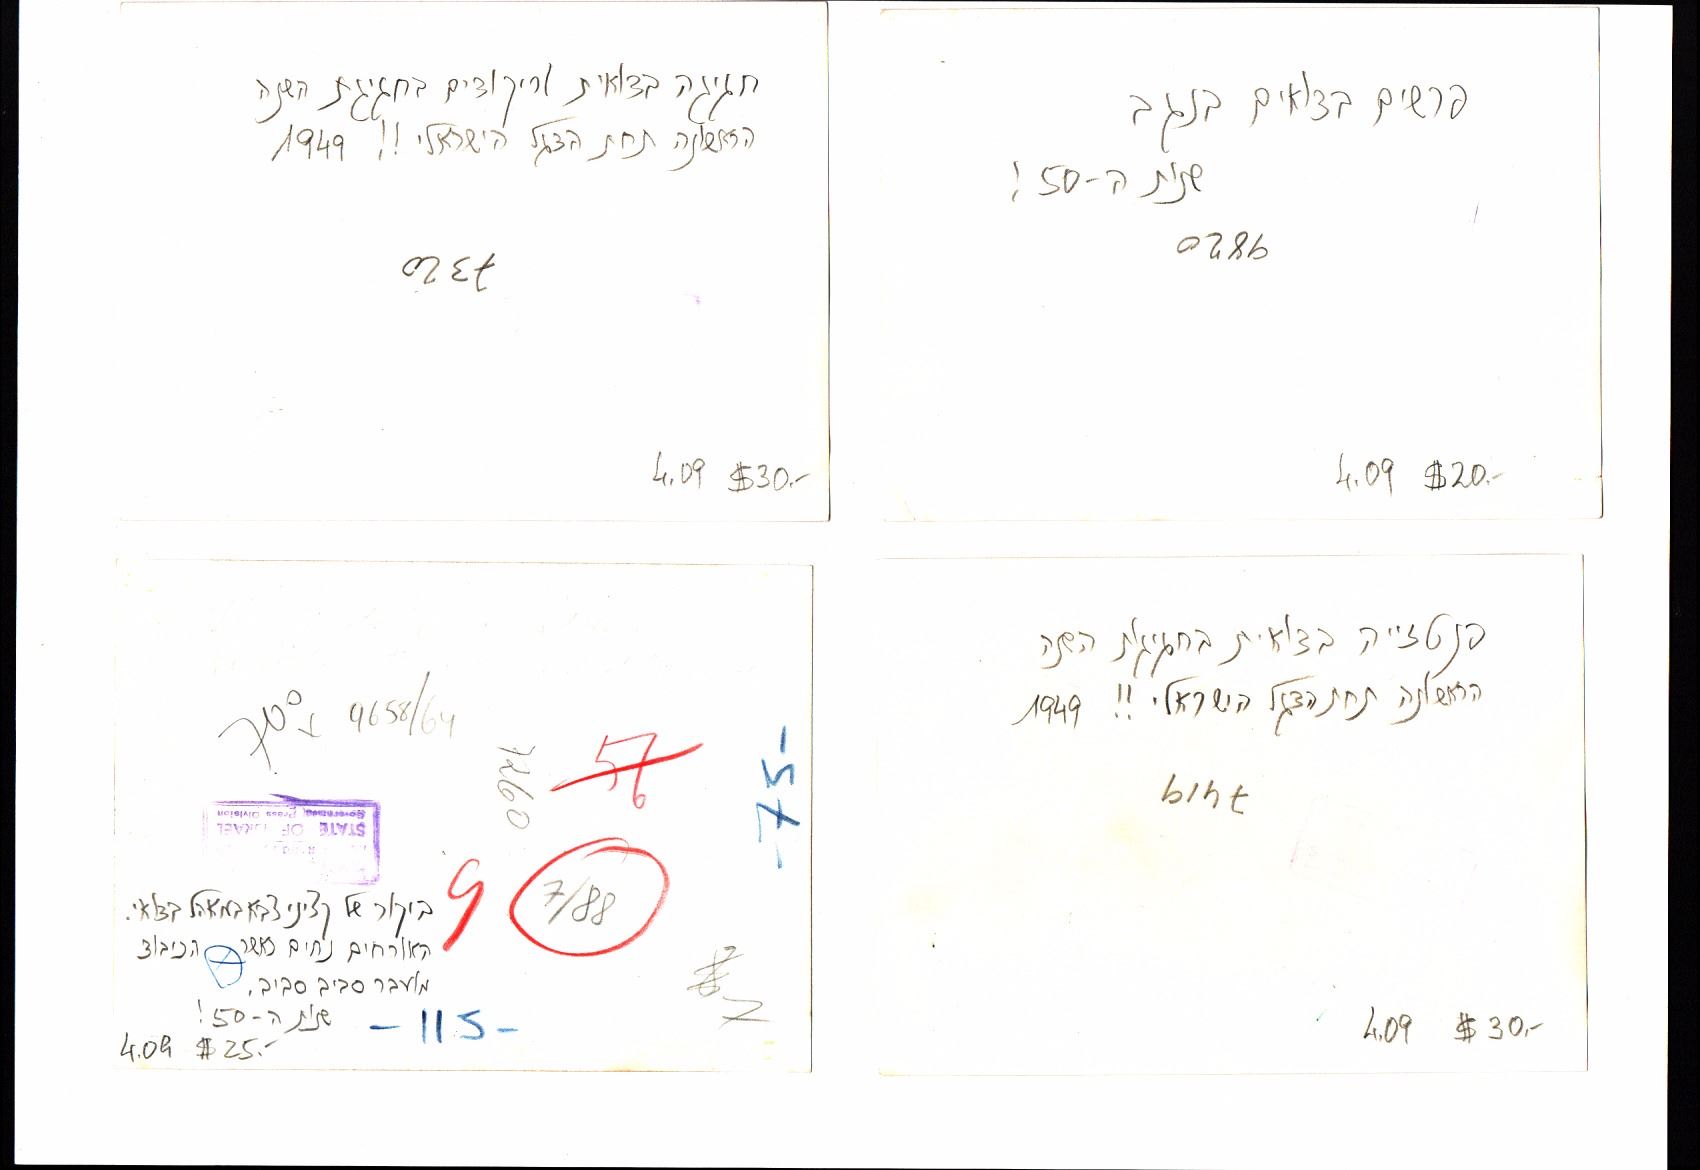 חגיגה בצואית וריקודים בחגיגת השנה
הראשונה תחת הדגל הישראלי !! 1949
4.09 $30.-
פרשים בדואים בנגב
שנות ה-50 !
4.09 $20.-
9658/64
7260
57
-75-
STATE OF ISRAEL
Press Division
9
7/88
ביקור של קציני צבא במאהל בדואי.
האורחים נחים כאשר הכיבוד
מועבר סביב סביב.
שנות ה-50 !
-115-
4.09 $25.-
פנטזייה בדואית בחגיגת השנה
הראשונה תחת הדגל הישראלי !! 1949
4.09 $30.-